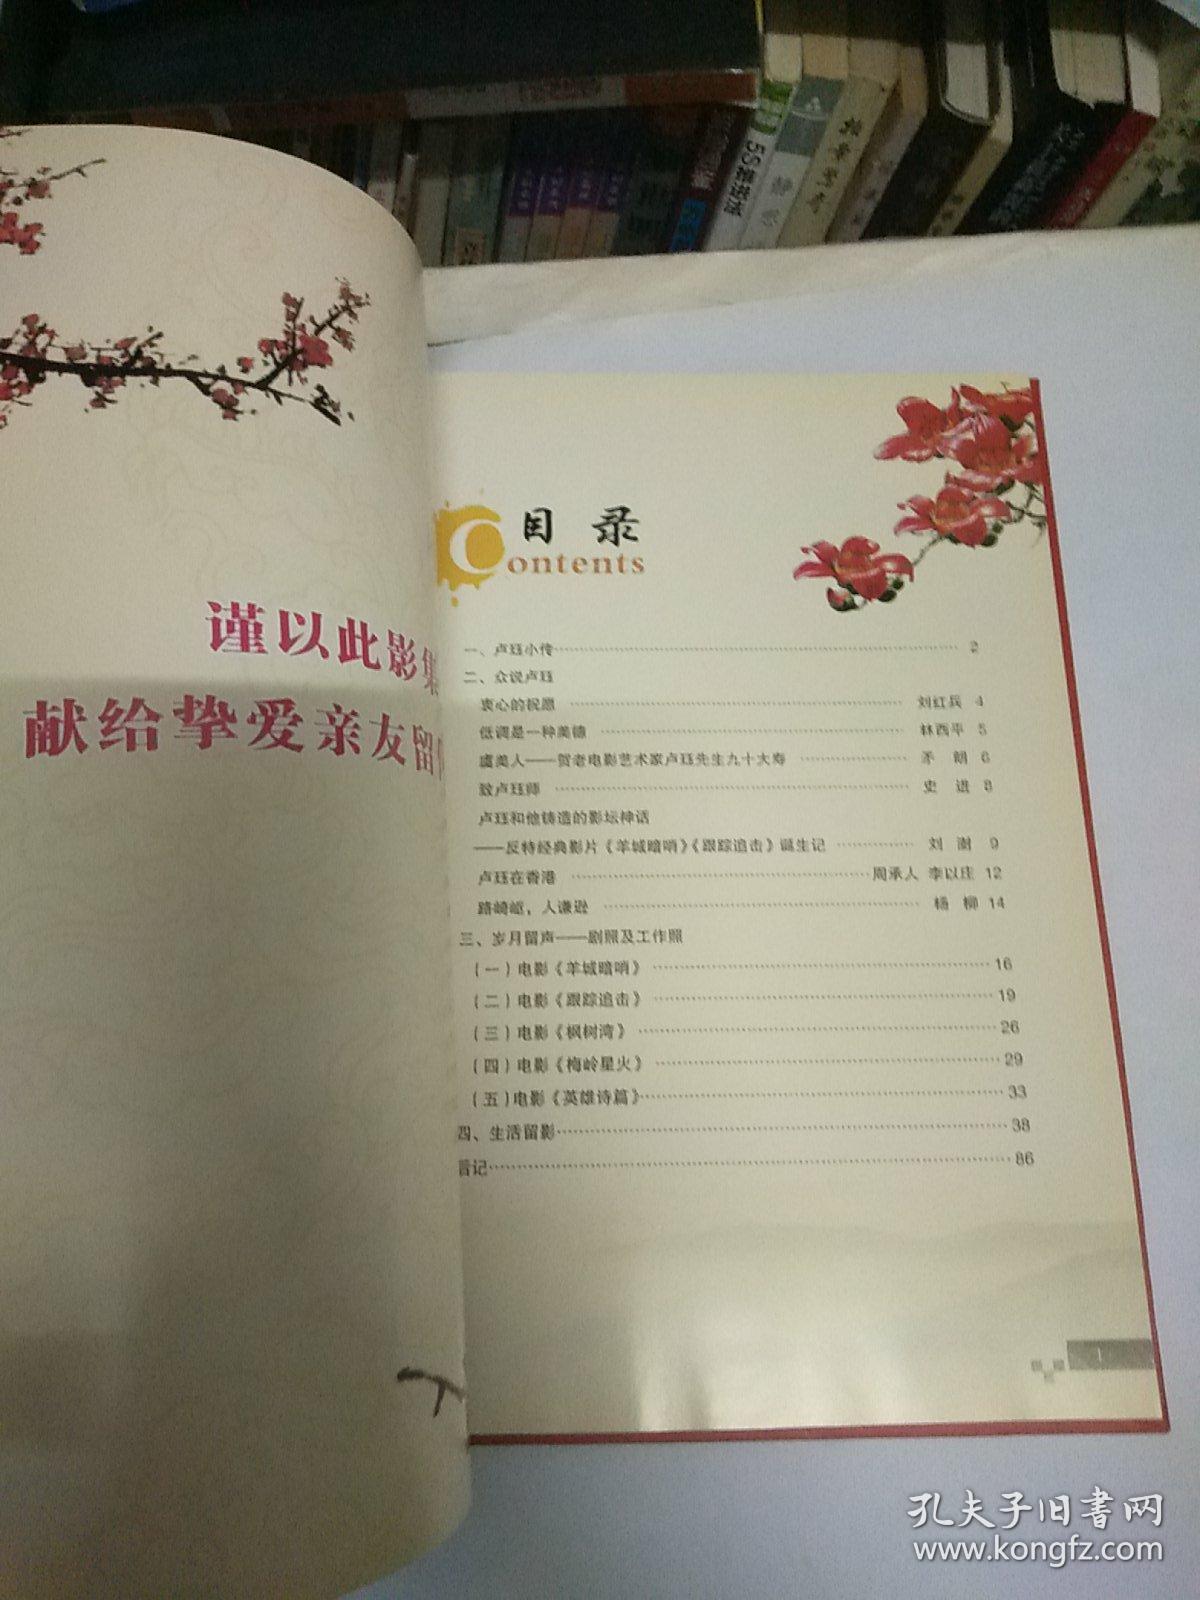 谨以此影集
献给挚爱亲友留
目录
Contents
一、卢珏小传 2
二、众说卢珏
衷心的祝愿 刘红兵 4
低调是一种美德 林西平 5
虞美人——贺老电影艺术家卢珏先生九十大寿 矛 朗 6
致卢珏师 史 进 8
卢珏和他铸造的影坛神话
——反特经典影片《羊城暗哨》《跟踪追击》诞生记 刘 澍 9
卢珏在香港 周承人 李以庄 12
路崎岖，人谦逊 杨 柳 14
三、岁月留声——剧照及工作照
(一)电影《羊城暗哨》 16
(二)电影《跟踪追击》 19
(三)电影《枫树湾》 26
(四)电影《梅岭星火》 29
(五)电影《英雄诗篇》 33
四、生活留影 38
后记 86
1
5S推进法
静思
孔夫子旧书网
www.kongfz.com